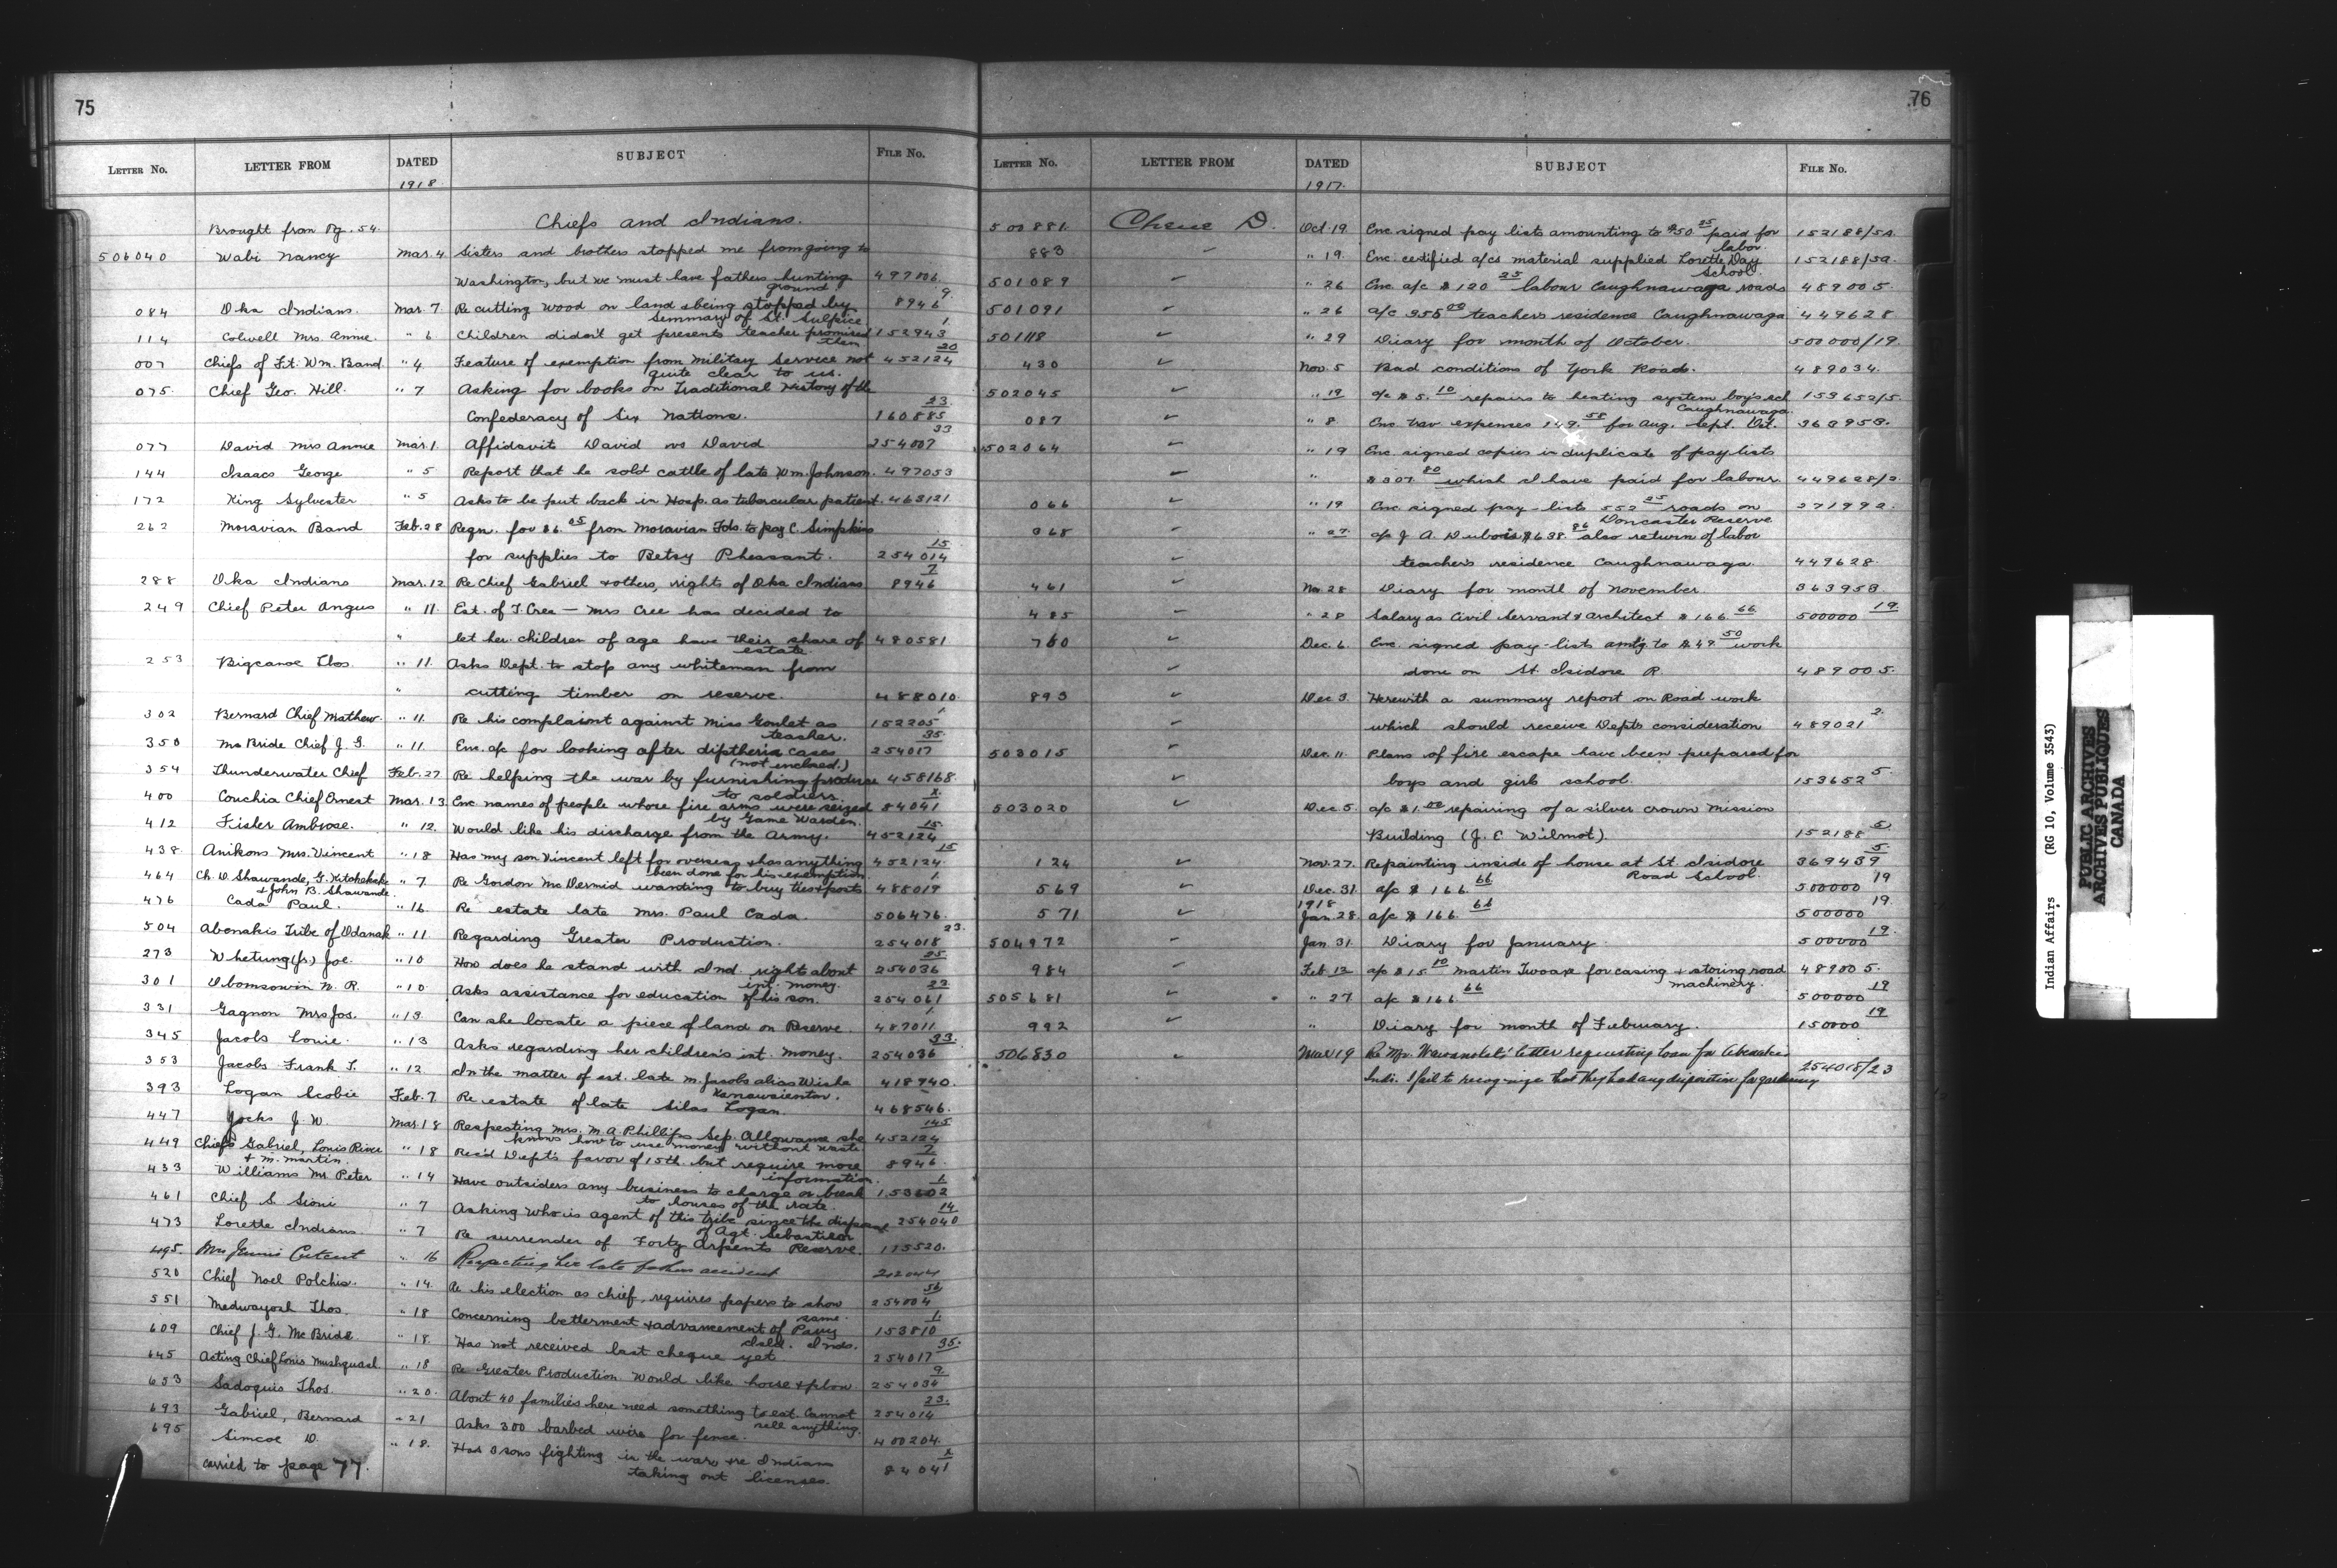 75
LETTER No. LETTER FROM DATED SUBJECT FILE No.
1918.
Brought from Pg. 54. Chiefs and Indians.
506040 Wabi Nancy Mar. 4. Sisters and brothers stopped me from going to
Washington, but we must have fathers hunting 497806.
ground. 9.
084 Oka Indians. Mar. 7. Re cutting wood on land & being stopped by 8946
Seminary of St. Sulpice. 1.
114 Colwell Mrs. Annie. " 6 Children didn't get presents teacher promised 152943
them. 20
007 Chiefs of Ft. Wm. Band. " 4 Feature of exemption from Military Service not 452124
quite clear to us.
075. Chief Geo. Hill. " 7 Asking for books on Traditional History of the
23.
Confederacy of Six Nations. 160885
33
077 David Mrs Annie Mar. 1. Affidavit David vs David 254007
144 Isaacs George " 5 Report that he sold cattle of late Wm. Johnson. 497053
172 King Sylvester " 5 Asks to be put back in Hosp. as tubercular patient. 463121
262 Moravian Band Feb. 28 Reqn. for $6.05 from Moravian Fds. to pay C. Simpkins
15
for supplies to Betsy Pheasant. 254014
7
288 Oka Indians Mar. 12 Re Chief Gabriel & others, rights of Oka Indians 8946
249 Chief Peter Angus " 11. Est. of T. Cree — Mrs Cree has decided to
" let her children of age have their share of 480581
estate.
253 Bigcanoe Thos. " 11. Asks Dept. to stop any whiteman from
" cutting timber on reserve. 488010.
302 Bernard Chief Mathew. " 11. Re his complaint against Miss Goulet as 152205 1
teacher. 35.
350 McBride Chief J. G. " 11. Enc. a/c for looking after diptheria cases 254017
(not enclosed.)
354 Thunderwater Chief Feb. 27 Re helping the war by furnishing produce 458168.
to soldiers. x.
400 Couchia Chief Ernest Mar. 13 Enc. names of people whose fire arms were seized 84041
by Game Warden. 15.
412 Fisher Ambrose. " 12. Would like his discharge from the Army. 452124
15
438 Anikons Mrs. Vincent " 18 Has my son Vincent left for overseas & has anything 452124.
been done for his exemption. 1.
464 Ch. D. Shawande, G. Kitchekeke " 7. Re Gordon McDermid wanting to buy ties & posts 488019
& John B. Shawande.
476 Cada Paul. " 16. Re estate late Mrs. Paul Cada. 506476.
23.
504 Abenakis Tribe of Odanak " 11 Regarding Greater Production. 254018
35
273 Whetung (Jr.) Joe. " 10 How does he stand with Ind. right about 254036
int. money. 22
301 Obomsowin N. R. " 10. Asks assistance for education of his son. 254061
1.
331 Gagnon Mrs Jos. " 13. Can she locate a piece of land on Reserve. 487011.
33.
345 Jacobs Louie. " 13 Asks regarding her children's int. money. 254036
353 Jacobs Frank T. " 12 In the matter of est. late M. Jacobs alias Wishe 418940.
Kanawaienton.
393 Logan Scobie Feb. 7. Re estate of late Silas Logan. 468546.
145
447 Jocks J. W. Mar. 18 Respecting Mrs. M. A. Phillips Sep. Allowance she 452124
knows how to use money without waste 7
449 Chiefs Gabriel, Louis Rice " 18 Rec'd Dept's favor of 15th. but require more 8946.
& M. Martin. information. 1
433 Williams Mr Peter " 14 Have outsiders any business to charge or break 153602
to houses of the rate. 14
461 Chief S. Sioui " 7 Asking who is agent of this tribe since the 254040
of Agt. Sebastien
473 Lorette Indians. " 7 Re surrender of Forty Arpents Reserve. 115520.
495. Mrs " 16 Respecting her late father's accident 212044
56
520 Chief Noel Polchis. " 14. Re his election as chief, requires papers to show 254004
same. 1.
551 Medwayosh Thos. " 18 Concerning betterment & advancement of Parry 153810
Isld. Inds. 35.
609 Chief J. G. McBride " 18. Has not received last cheque yet. 254017
9
645 Acting Chief Louis Mushquash " 18 Re Greater Production. Would like horse & plow. 254034
23.
653 Sadoquis Thos. " 20. About 40 families here need something to eat. Cannot 254014
sell anything.
693 Gabriel, Bernard " 21 Asks 300 barbed wire for fence. 400204.
x
695 Simcoe D. " 18. Has 3 sons fighting in the war, & re Indians 84041
taking out licenses.
carried to page 77.
76
LETTER No. LETTER FROM DATED SUBJECT FILE No.
1917.
500881. Chene D. Oct. 19. Enc. signed pay lists amounting to $50 25 paid for 152188/5A.
labor.
883 ✓ " 19. Enc. certified a/cs material supplied Lorette Day 152188/5a.
School.
501089 ✓ " 26 Enc. a/c $120 25 labour Caughnawaga roads 489005.
501091 ✓ " 26 a/c 255 00 teachers residence Caughnawaga 449628
501118 ✓ " 29 Diary for month of October. 500000/19.
430 ✓ Nov. 5 Bad conditions of York Roads. 489034.
502045 ✓ " 19 a/c $5. 10 repairs to heating system boys sch 153652/5.
Caughnawaga.
087 ✓ " 8 Enc. trav. expenses 149. 58 for Aug. Sept. Oct. 363953.
502064 ✓ " 19 Enc. signed copies in duplicate of pay lists
✓ " $307. 80 which I have paid for labour. 449628/2.
066 ✓ " 19 Enc. signed pay-lists 552 25 roads on 271992.
Doncaster Reserve
068 ✓ " 27. a/c J. A. Dubois $638. 86 also return of labor
✓ teacher's residence Caughnawaga. 449628.
461 ✓ Nov. 28 Diary for month of November. 363953
485 ✓ " 28 Salary as Civil Servant & architect $166 66 500000 19.
760 ✓ Dec. 6. Enc. signed pay-lists amtg. to $49 50 work
✓ done on St. Isidore R. 489005.
893 ✓ Dec 3. Herewith a summary report on Road work
✓ which should receive Depts consideration 489021 2.
503015 ✓ Dec. 11. Plans of fire escape have been prepared for
✓ boys and girls school. 153652 5.
503020 ✓ Dec. 5. a/c $1.00 repairing of a silver crown Mission
Building (J. E. Wilmot). 152188 5
124 ✓ Nov. 27. Repainting inside of house at St. Isidore 369439 5.
Road School.
569 ✓ Dec. 31. a/c $166 66 500000 19
1918
571 ✓ Jan. 28. a/c $166. 66 500000 19.
504972 ✓ Jan. 31. Diary for January. 500000 19.
984 ✓ Feb. 12 a/c $15 10 Martin Twoaxe for casing & storing road 489005.
machinery.
505681 ✓ " 27 a/c $166 66 500000 19
992 ✓ " Diary for month of February. 150000 19
506830 ✓ Mar 19 Re Mr. letter requesting loan for Abenakis
Inds. I fail to recognize that they had any disposition for gardening 254018/23
Indian Affairs (RG 10, Volume 3543)
PUBLIC ARCHIVES
ARCHIVES PUBLIQUES
CANADA